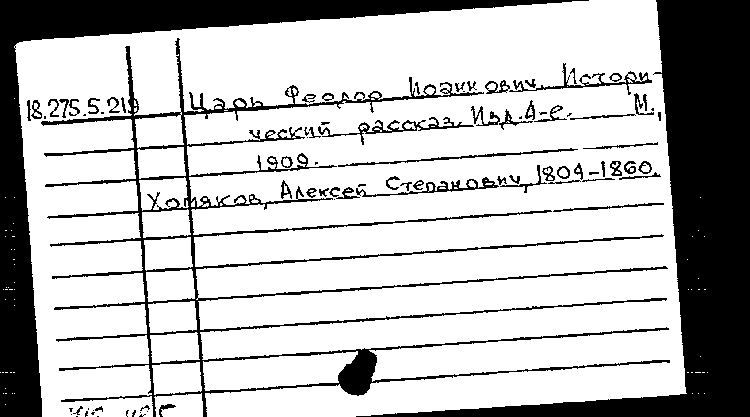 18.275.5.219 Царь Феодор Иоаннович. Истори-
ческий рассказ. Изд. 4-е. М.,
1909.
Хомяков, Алексей Степанович, 1804-1860.